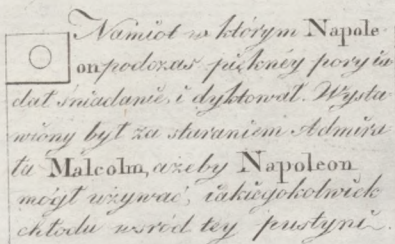 Namiot w którym Napole
on podczas pięknéy pory ia
dał śniadanie, i dyktował. Wysta
wiony był za staraniem Admira
ła Malcolm, ażeby Napoleon
mógł używać, iakiegokolwiek
chłodu wśród tey pustyni.